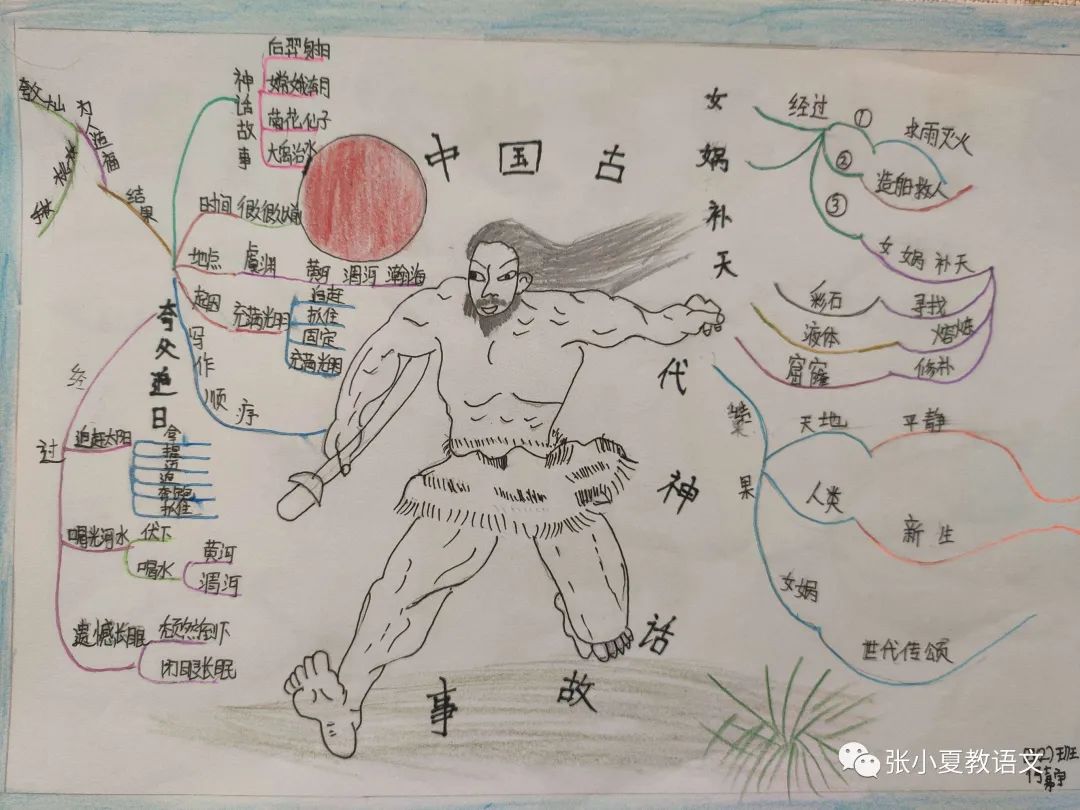 中国古代神话故事
夸父追日
神话故事
后羿射日
嫦娥奔月
菊花仙子
大禹治水
时间
很久很久以前
地点
虞渊
黄河
渭河
瀚海
起因
充满光明
追赶
抓住
固定
充满光明
写作顺序
经过
追赶太阳
拿
提
迈
追
奔跑
抓住
喝光河水
伏下
喝水
黄河
渭河
遗憾长眠
颓然倒下
闭眼长眠
结果
为人造福
夸父山
桃林
女娲补天
经过
①
求雨灭火
②
造船救人
③
女娲补天
寻找
彩石
熔炼
液体
修补
窟窿
结果
天地
平静
人类
新生
女娲
世代传颂
张小夏教语文